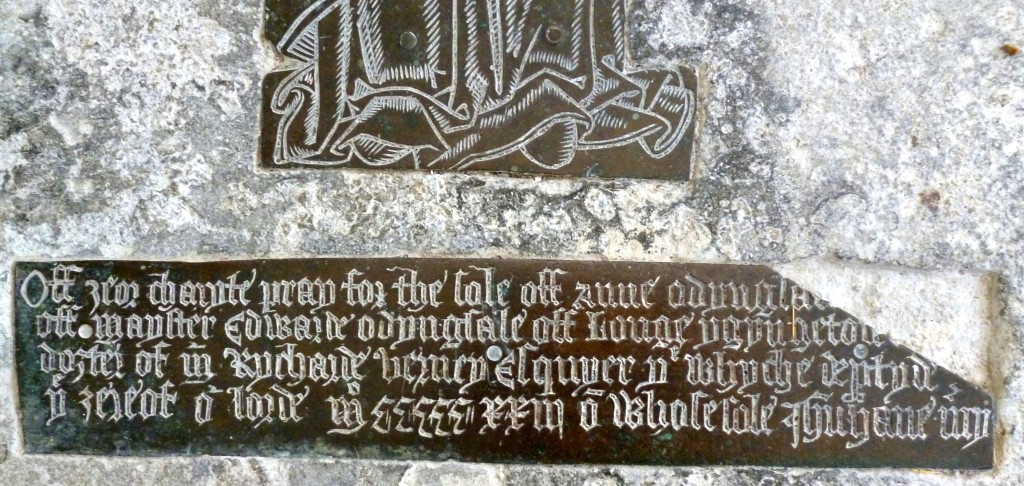 Off zeor charyte pray for the sole off anne odyngsa
off mayster Edwarde odyngsale off Longe ygyngeton
dozter of m̄ Rycharde verney Esquyer yᵉ whyche deptyd
yᵉ zereof oʳ lorde mᵒ ccccc xxiii oō whose sole Jhu haue m̄cy